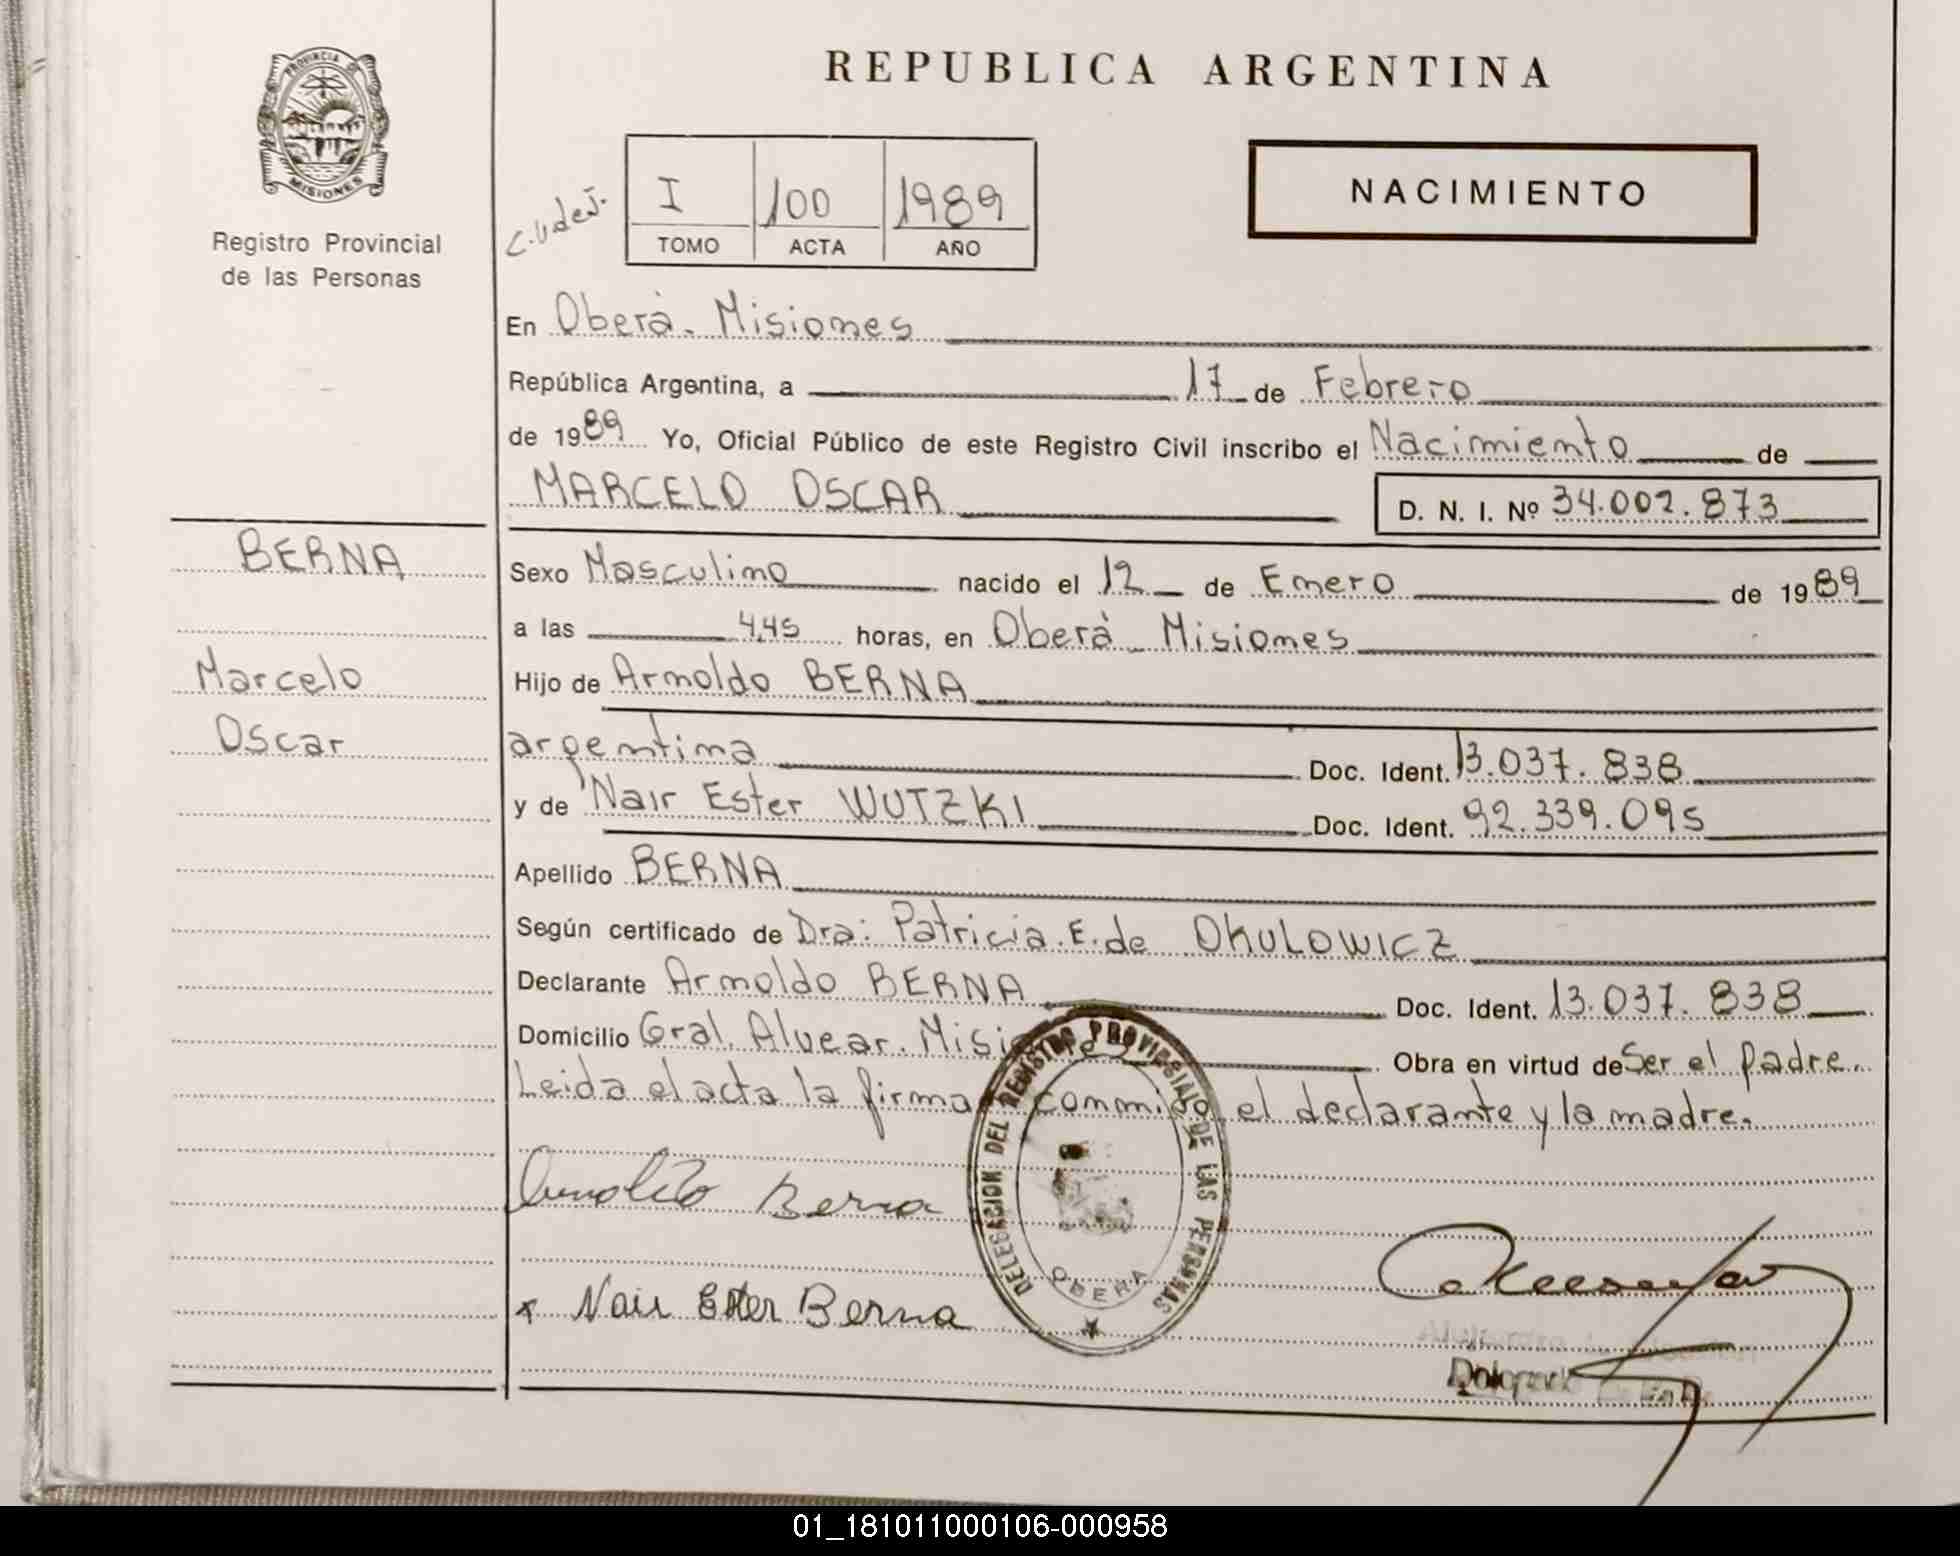 REPUBLICA ARGENTINA
PROVINCIA DE
MISIONES
Registro Provincial
de las Personas
I 100 1989
TOMO ACTA AÑO
NACIMIENTO
En Oberà. Misiones
República Argentina, a 17 de Febrero
de 1989 Yo, Oficial Público de este Registro Civil inscribo el Nacimiento de
MARCELO OSCAR D. N. I. Nº 34.002.873
BERNA
Marcelo
Oscar
Sexo Masculino nacido el 12 de Enero de 1989
a las 4,45 horas, en Oberà Misiones
Hijo de Arnoldo BERNA
argentina Doc. Ident. 13.037.838
y de Nair Ester WUTZKI Doc. Ident. 92.339.095
Apellido BERNA
Según certificado de Dra: Patricia.E.de OKULOWICZ
Declarante Arnoldo BERNA Doc. Ident. 13.037.838
Domicilio Gral. Alvear. Misiones Obra en virtud de Ser el padre.
Leida el acta la firman conmigo el declarante y la madre.
DELEGACION DEL REGISTRO PROVINCIAL DE LAS PERSONAS
OBERA
Arnoldo Berna
x Nair Ester Berna
01_181011000106-000958